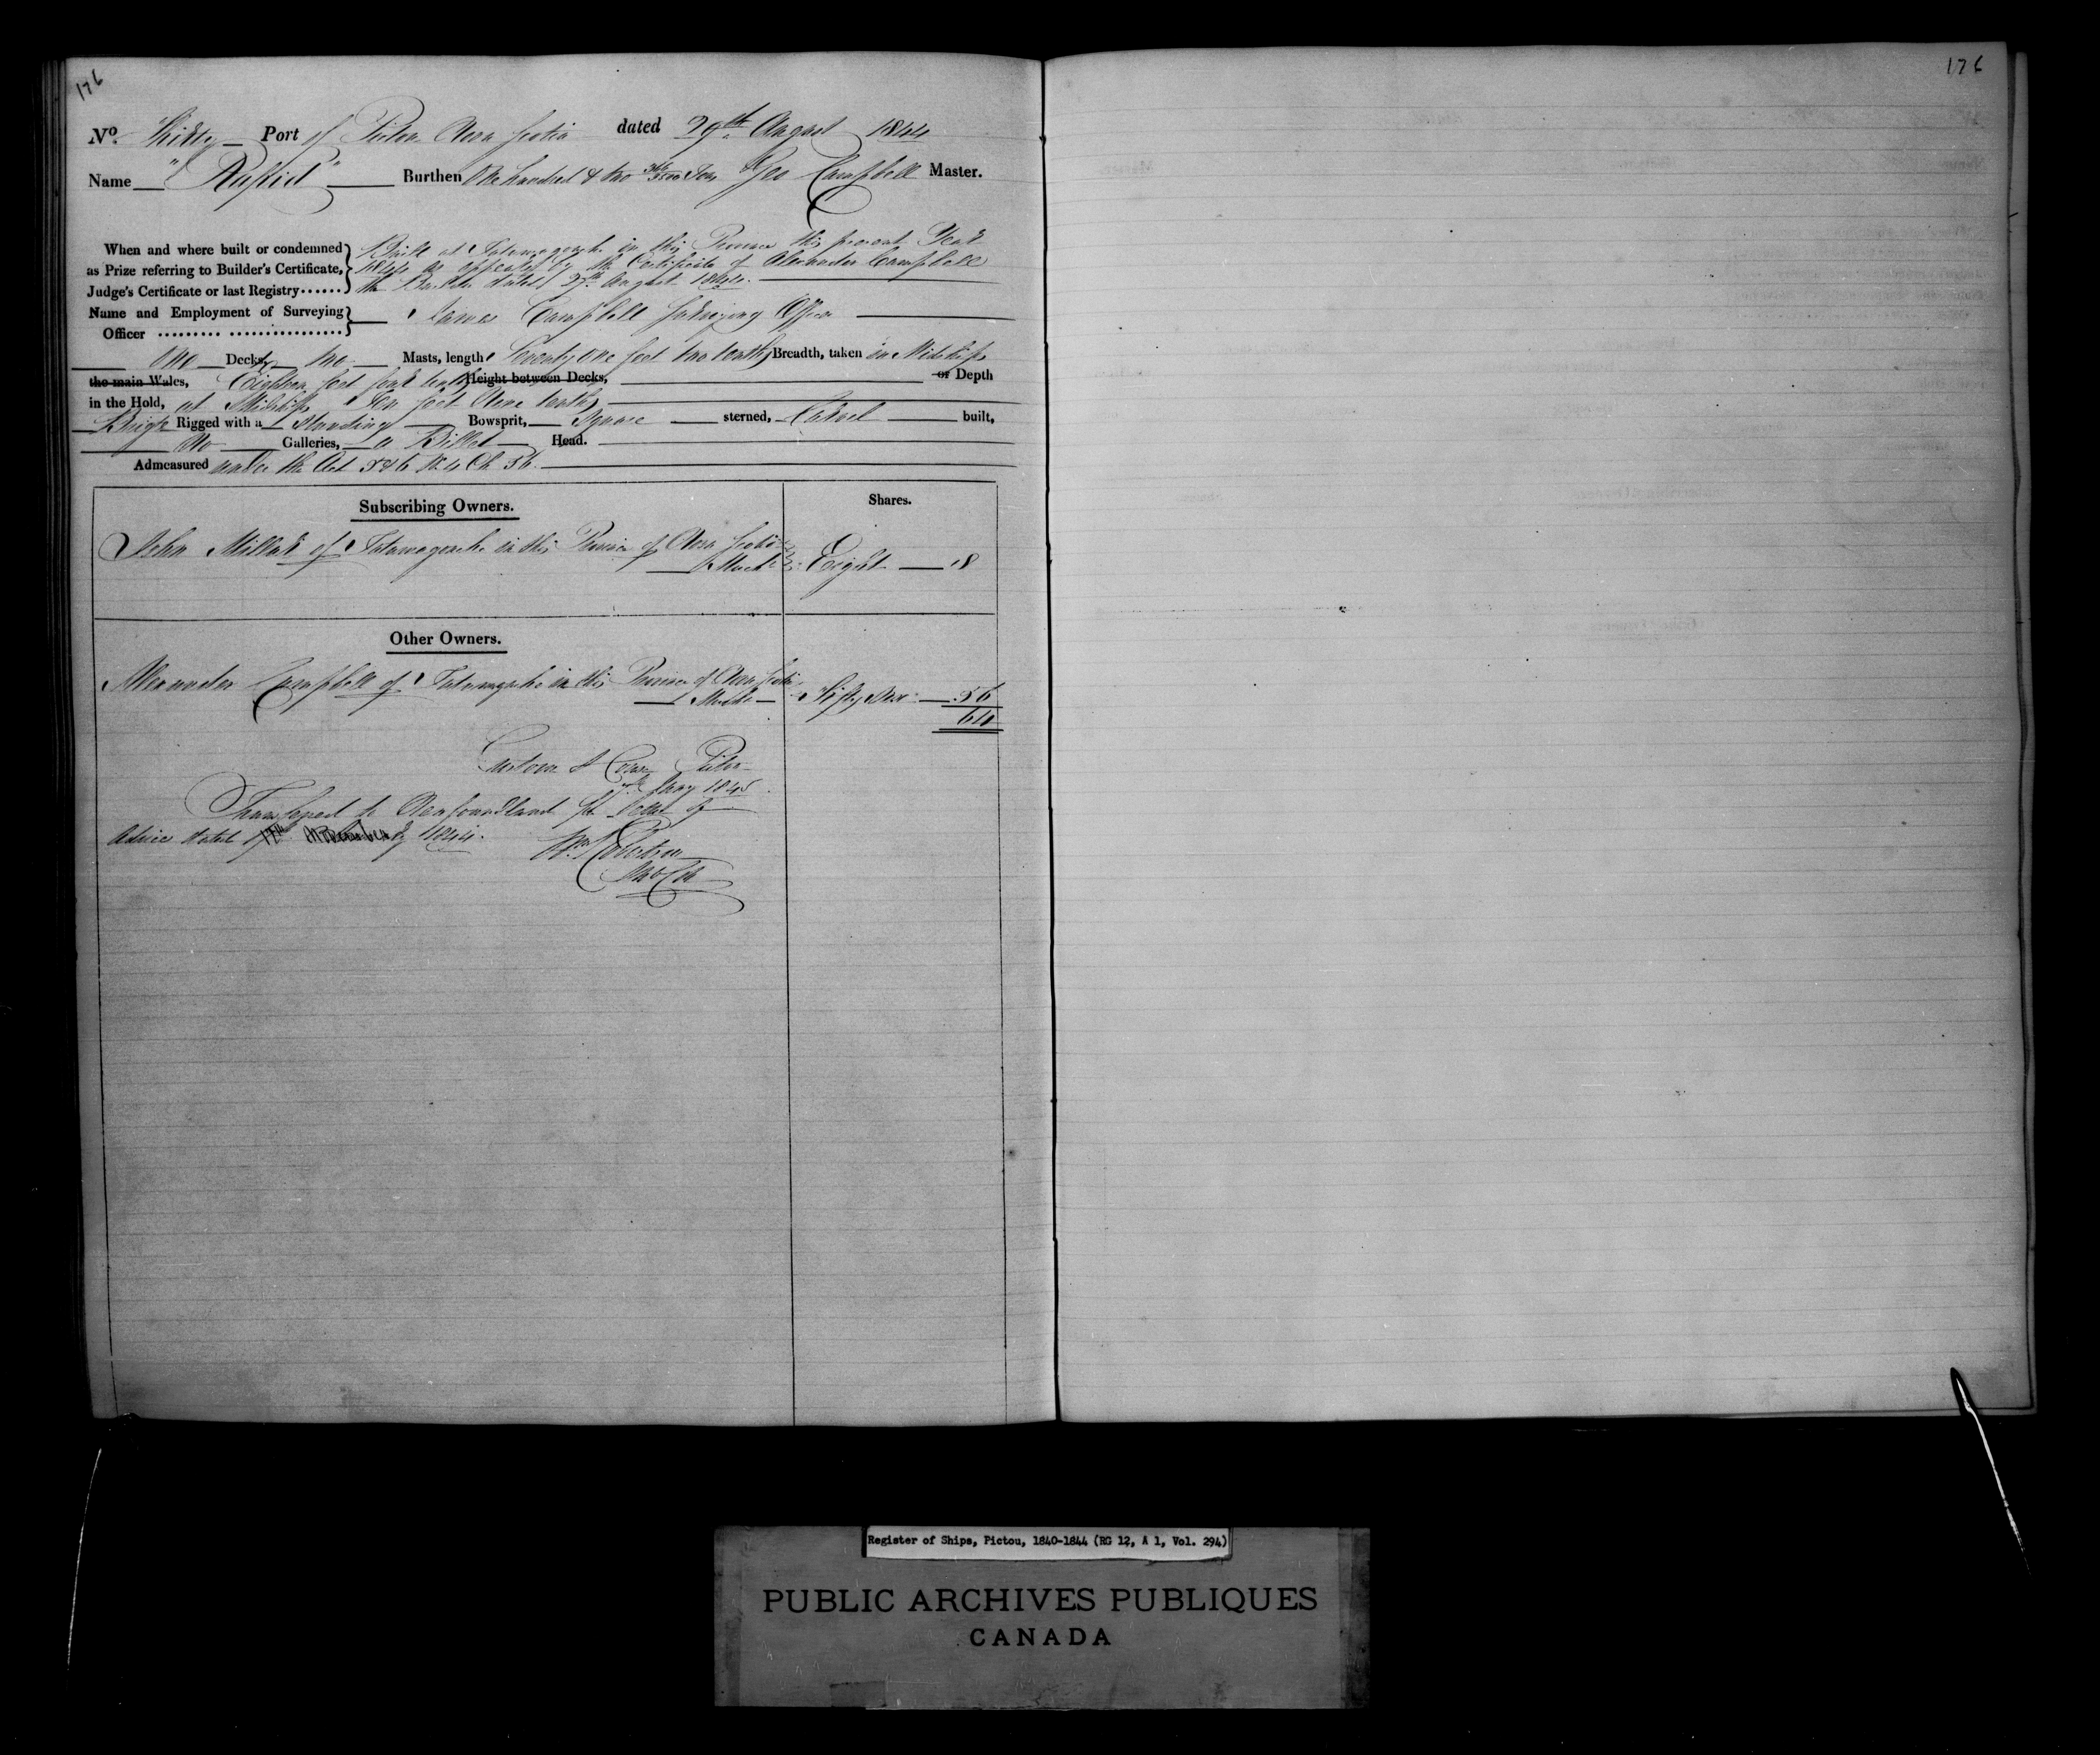 176
176
No. Thirty Port of Pictou Nova Scotia dated 29th August 1844
Name "Rapid" Burthen One hundred & two Tons Geo Campbell Master.
When and where built or condemned Built at Tatamagouche in this Province this present Year
as Prize referring to Builder's Certificate, 1844 as appears by the Certificate of Alexander Campbell
Judge's Certificate or last Registry...... the Builder dated 27th August 1844.
Name and Employment of Surveying James Campbell Surveying Officer
Officer
One Decks, two Masts, length Seventy one feet two tenths Breadth, taken in Midships
the main Wales, Eighteen feet four tenths Height between Decks, or Depth
in the Hold, at Midships Ten feet Nine tenths
Brig Rigged with a Standing Bowsprit, Square sterned, Carvel built,
No Galleries, a Billet Head.
Admeasured under the Act 5 & 6 W. 4 Ch. 56.
Subscribing Owners. Shares.
John Millar of Tatamagouche in this Province of Nova Scotia
Mercht Eight 8
Other Owners.
Alexander Campbell of Tatamagouche in this Province of Nova Scotia
Fifty six 56
64
Custom House Pictou
Jany 1845
Transfered to Newfoundland per letter of
Advice dated 17th November 1844.
Wm Robertson
Register of Ships, Pictou, 1840-1844 (RG 12, A 1, Vol. 294)
PUBLIC ARCHIVES PUBLIQUES
CANADA